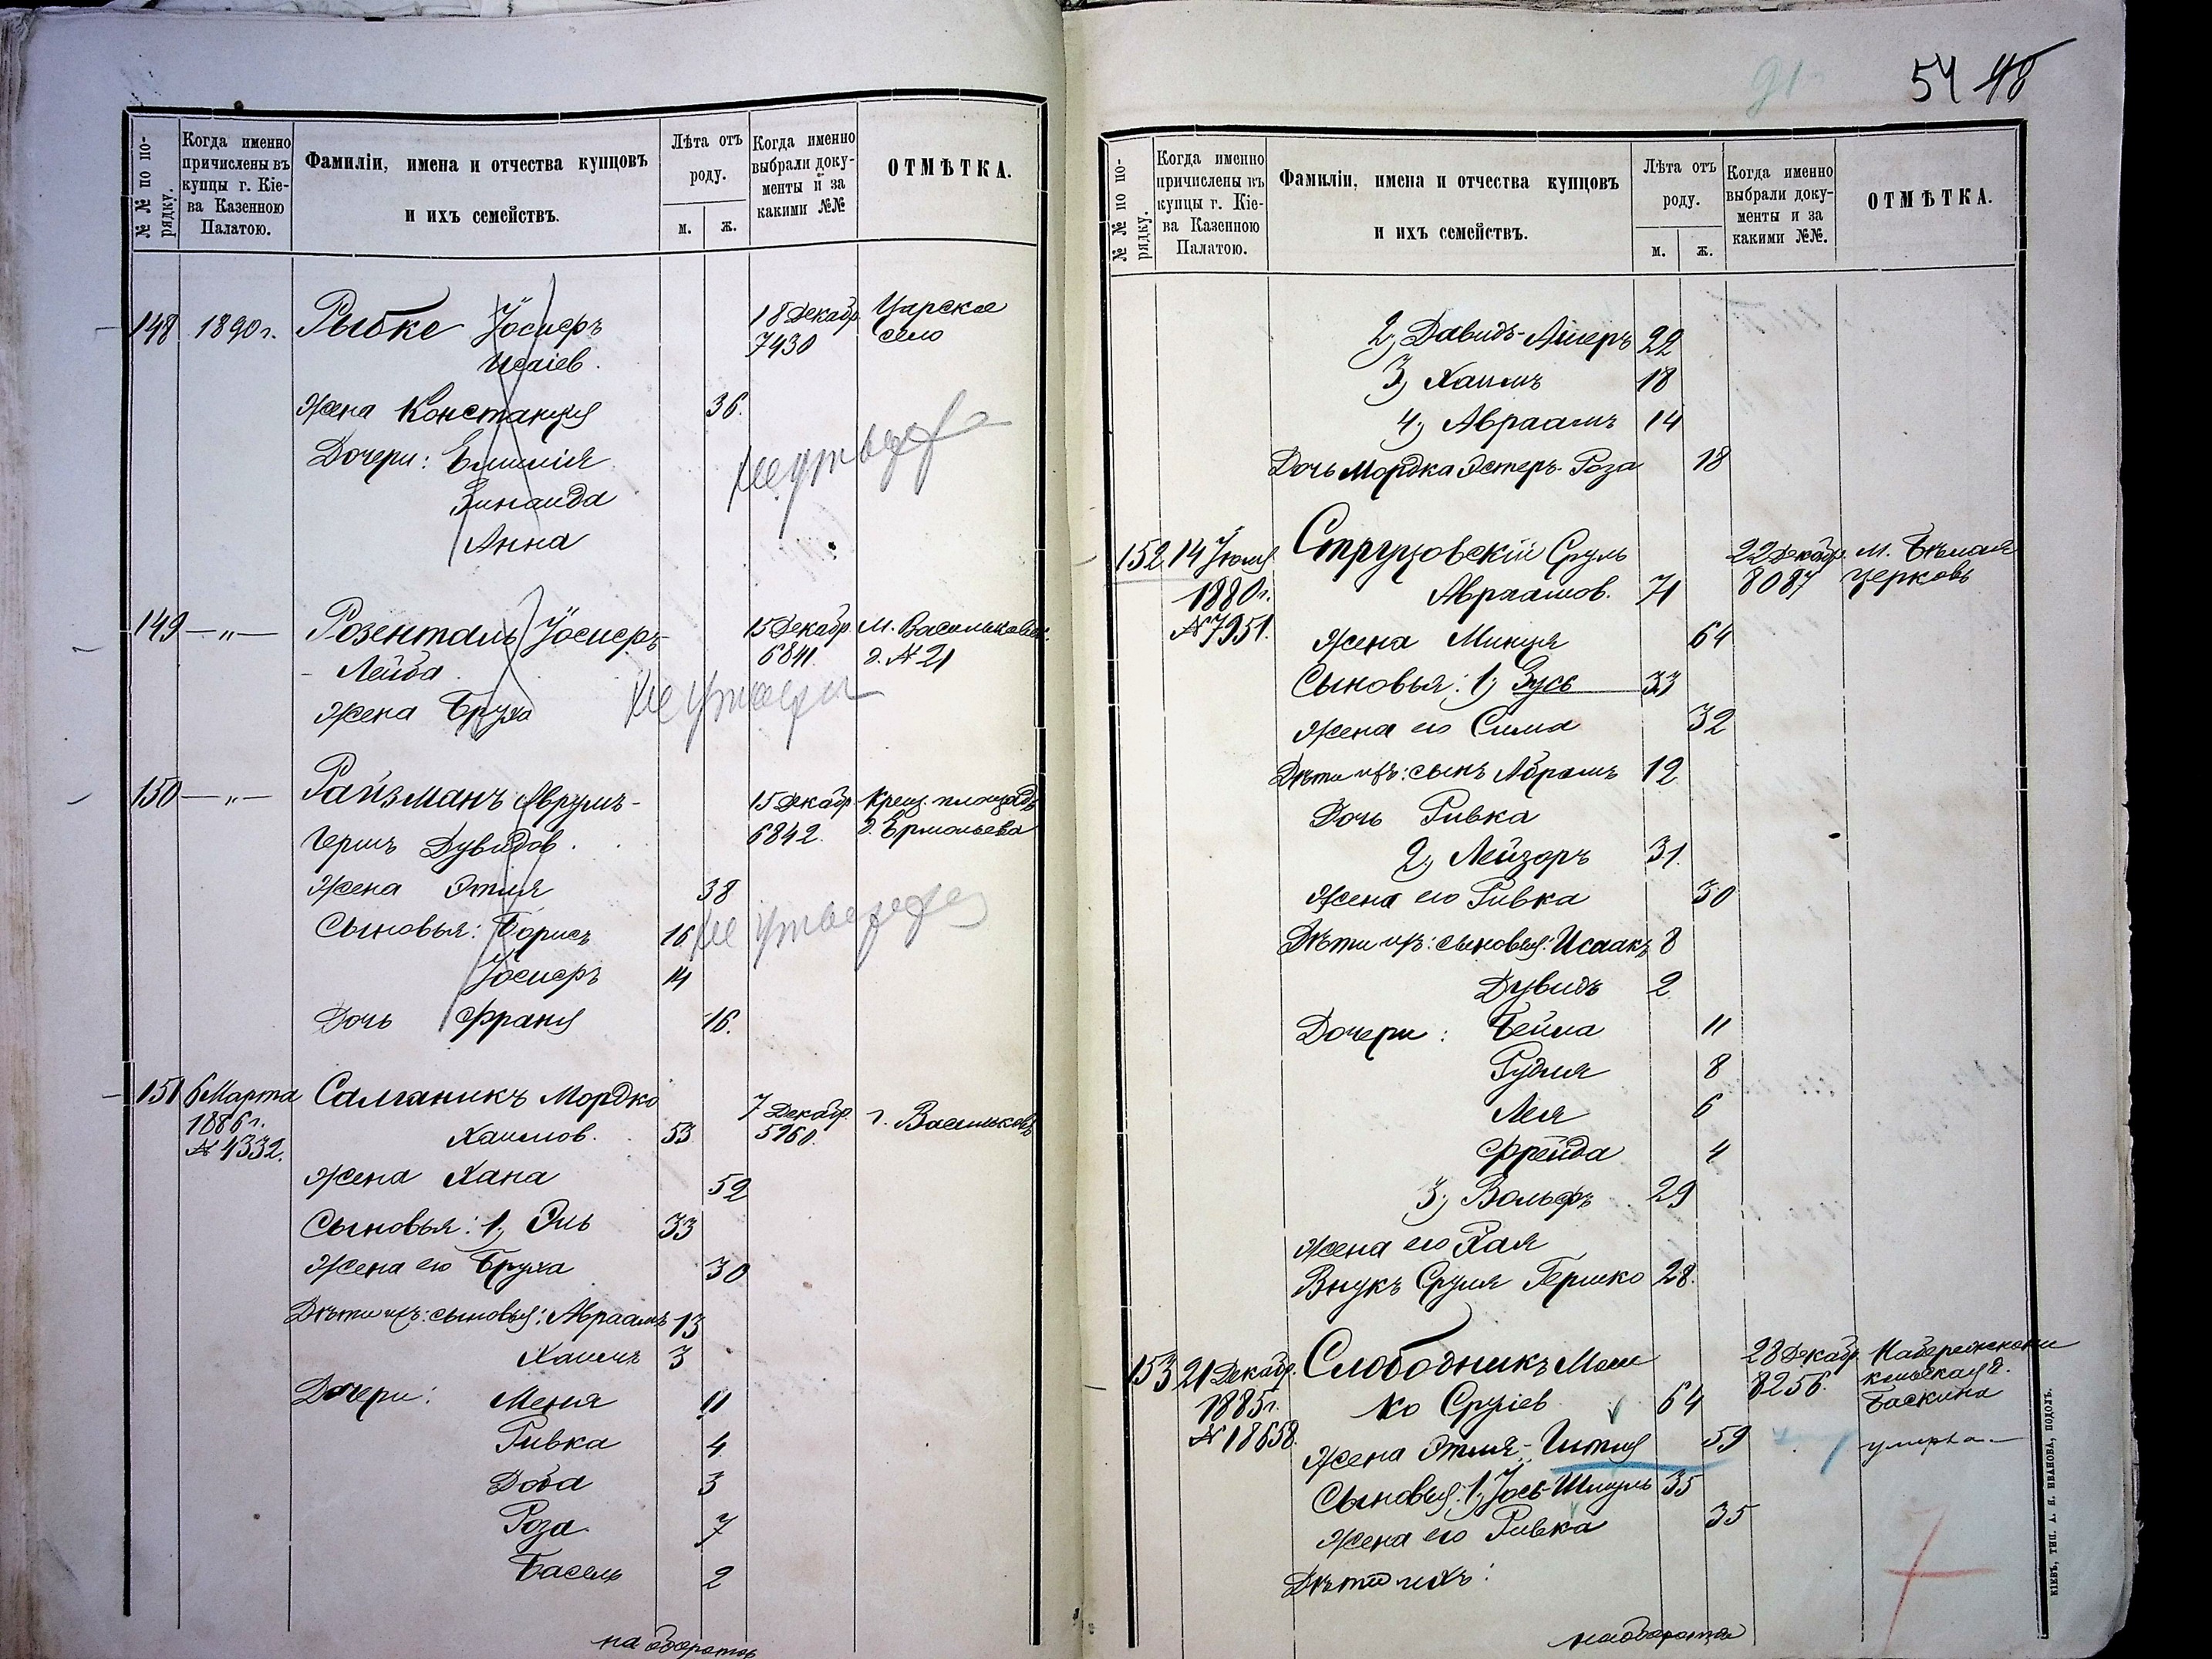 № № по порядку.
Когда именно причислены въ купцы г. Кіева Казенною Палатою.
Фамиліи, имена и отчества купцовъ и ихъ семействъ.
Лѣта отъ роду.
м.
ж.
Когда именно выбрали документы и за какими №№
ОТМѢТКА.
148 1890 г. Рыбке Іосифъ 18 Декабр. Царское
Исаіев. 7430 село
Жена Констанція 36.
Дочери: Емилія
Зинаида
Анна
149 —„— Розенталь Іосифъ- 15 Декабр. М. Васильковск.
Лейба 6841. д. № 21
Жена Бруха
150 —„— Райзманъ Аврумъ- 15 Декабр. Крещ. площадь
Гершъ Дувидов. 6842. д. Ермольева
Жена Этля 38
Сыновья: Борисъ 16
Іосифъ 14
Дочь Франя 16.
151 6 Марта Салганикъ Мордко 7 Декабр. г. Васильковъ
1886 г. Хаимов. 53 5960.
№ 4332.
Жена Хана 52
Сыновья: 1, Эль 33
Жена его Бруха 30
Дѣти ихъ: сыновья: Авраамъ 13
Хаимъ 3
Дочери: Меня 11
Ривка 4
Доба 3
Роза 7
Басель 2
на оборотѣ
91
54 48
№ № по порядку.
Когда именно причислены въ купцы г. Кіева Казенною Палатою.
Фамиліи, имена и отчества купцовъ и ихъ семействъ.
Лѣта отъ роду.
м.
ж.
Когда именно выбрали документы и за какими №№.
ОТМѢТКА.
2, Давидъ-Ашеръ 22
3, Хаимъ 18
4, Авраамъ 14
Дочь Мордка Эстеръ-Роза 18
152 14 Іюля Струцовскій Сруль 22 Декабр. м. Бѣлая
1880 г. Авраамов. 71 8087 Церковь
№ 7951. Жена Минця 64
Сыновья: 1, Зусь 33
Жена его Сима 32
Дѣти ихъ: сынъ Абрамъ 12
Дочь Ривка
2, Лейзоръ 31.
Жена его Ривка 30
Дѣти ихъ: сыновья: Исаакъ 8
Дувидъ 2
Дочери: Бейла 11
Рудля 8
Лея 6
Фрейда 4
3, Вольфъ 29
Жена его Хая
Внукъ Сруля Гершко 28.
153 21 Декабр. Слободникъ Мош 28 Декабр.
1885 г. ко Сруліев 64 8256. Баскина
№ 18658. Жена Этля-Гитля 59 умерла
Сыновья: 1, Іось-Шмуль 35
Жена его Ривка 35
Дѣти ихъ:
на оборотѣ
КІЕВЪ, ТИП. А. Я. ИВАНОВА, ПОДОЛЪ.